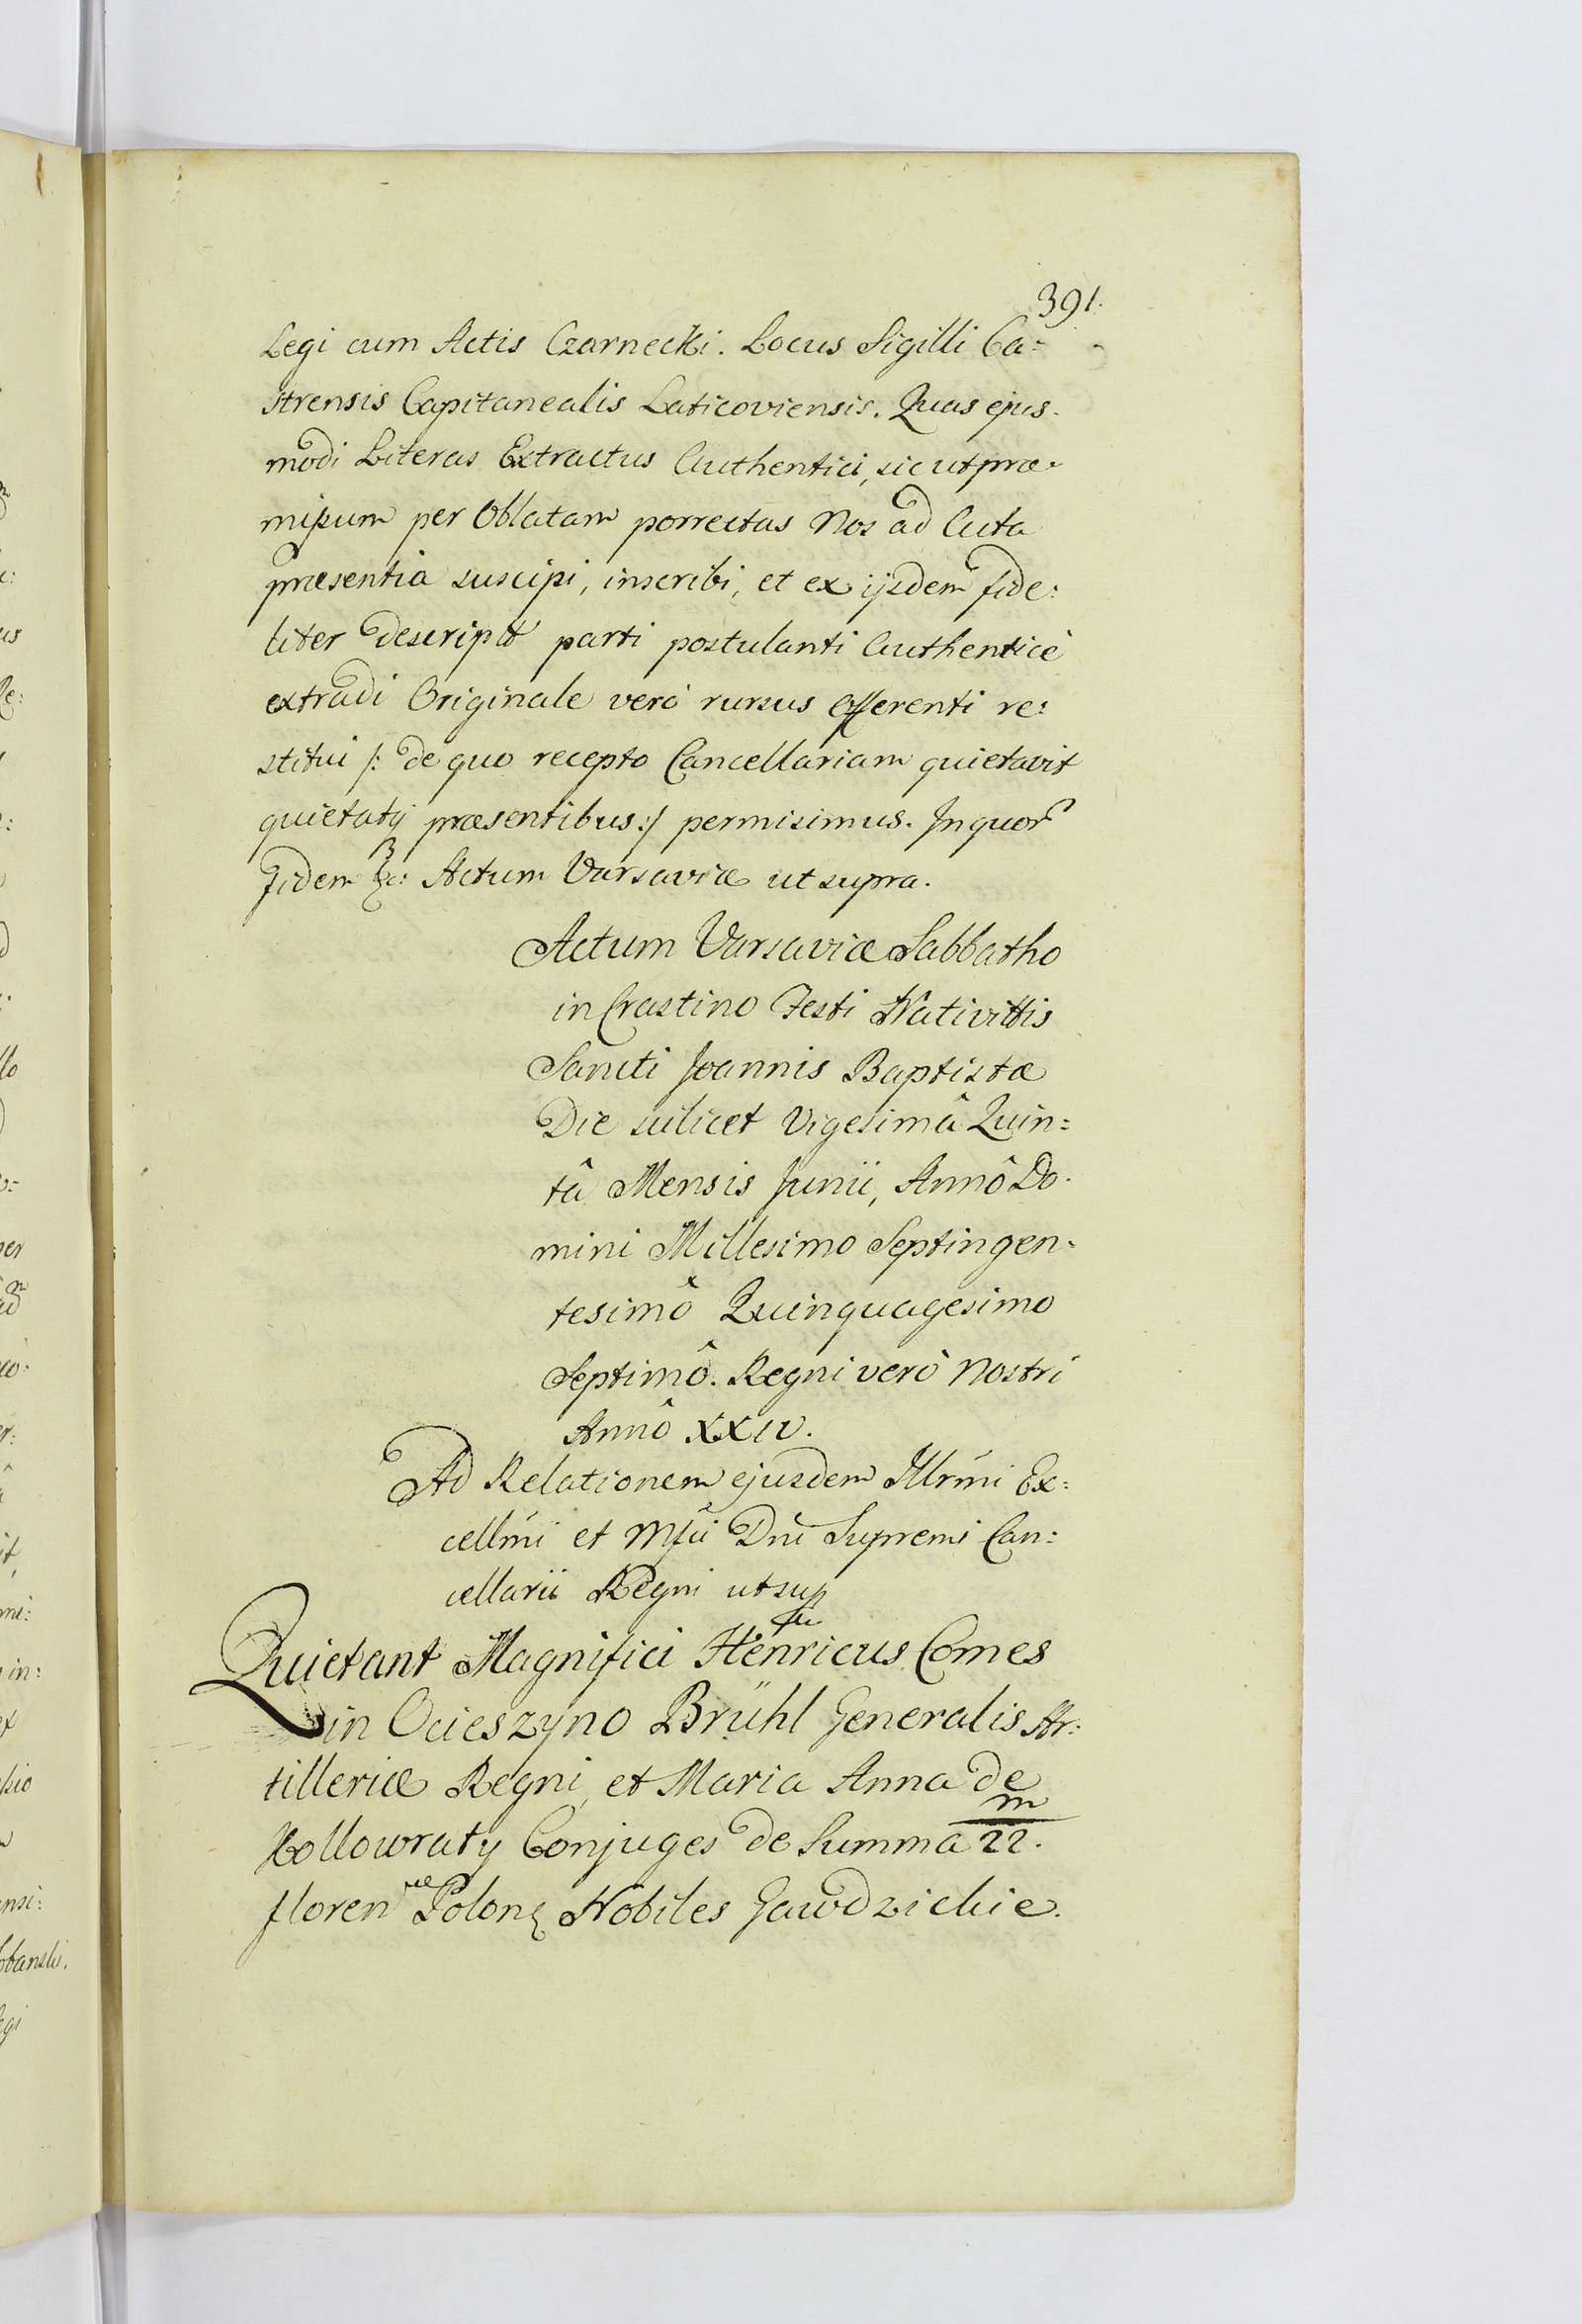 391.
Legi cum Actis Czarnecki. Locus Sigilli Ca=
strensis Capitanealis Laticoviensis. Quas ejus=
modi Literas Extractus Authentici, sic ut præ=
mißum per Oblatam porrectas Nos ad Acta
præsentia suscipi, inscribi, et ex ijsdem fide:
liter descripto parti postulanti Authenticè
extradi Originale verò rursus Offerenti re:
stitui /: de quo recepto Cancellariam quietavit
quietatq̃ præsentibus :/ permisimus. In quor
Fidem &c: Actum Varsaviæ ut supra.
Actum Varsaviæ Sabbatho
in Crastino Festi Nativittis
Sancti Joannis Baptistæ
Die scilicet Vigesimâ Quin=
tâ Mensis Junii, Annô Do=
mini Millesimo Septingen=
tesimô Quinquagesimo
Septimô. Regni verò Nostri
Annô XXIV.
Ad Relationem ejusdem Illrm̃i Ex:
cellm̃i et Mfci Dnĩ Supremi Can:
cellarii Regni ut sup
Quietant Magnifici Henricus Comes
in Ocieszyno Brühl Generalis Ar:
tilleriæ Regni, et Maria Anna de
Kollowraty Conjuges de Summa 22. m
floren Polon Nobiles Gawdzickie.